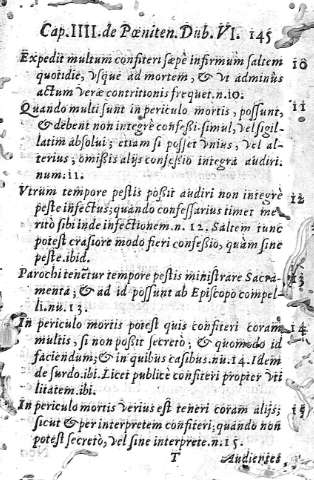 Cap. IIII. de Pœniten. Dub. VI. 145
Expedit multum confiteri sæpè infirmum saltem 10
quotidie, vsque ad mortem, & vt adminus
actum veræ contritionis frequet. n. 10.
Quando multi sunt in periculo mortis, possunt, 11
& debent non integrè confessi simul, vel sigil-
latim absolui; etiam si posset vnius, vel al-
terius, omissis alijs confessio integra audiri.
num: 11.
Vtrum tempore pestis possit audiri non integrè 12
peste infectus; quando confessarius timet me
ritò sibi inde infectionem. n. 12. Saltem tunc
potest crasiore modo fieri confessio, quàm sine
peste. ibid.
Parochi tenẽtur tempore pestis ministrare Sacra- 13
menta; & ad id possunt ab Episcopo compel-
li. nū. 13.
In periculo mortis potest quis confiteri coram 14
multis, si non possit secretò; & quomodo id
faciendum; & in quibus casibus. nū. 14. Idem
de surdo. ibi. Licet publicè confiteri propter vti
litatem. ibi.
In periculo mortis verius est teneri coram alijs; 15
sicut & per interpretem confiteri; quando non
potest secretò, vel sine interprete. n. 15.
T Audientes,